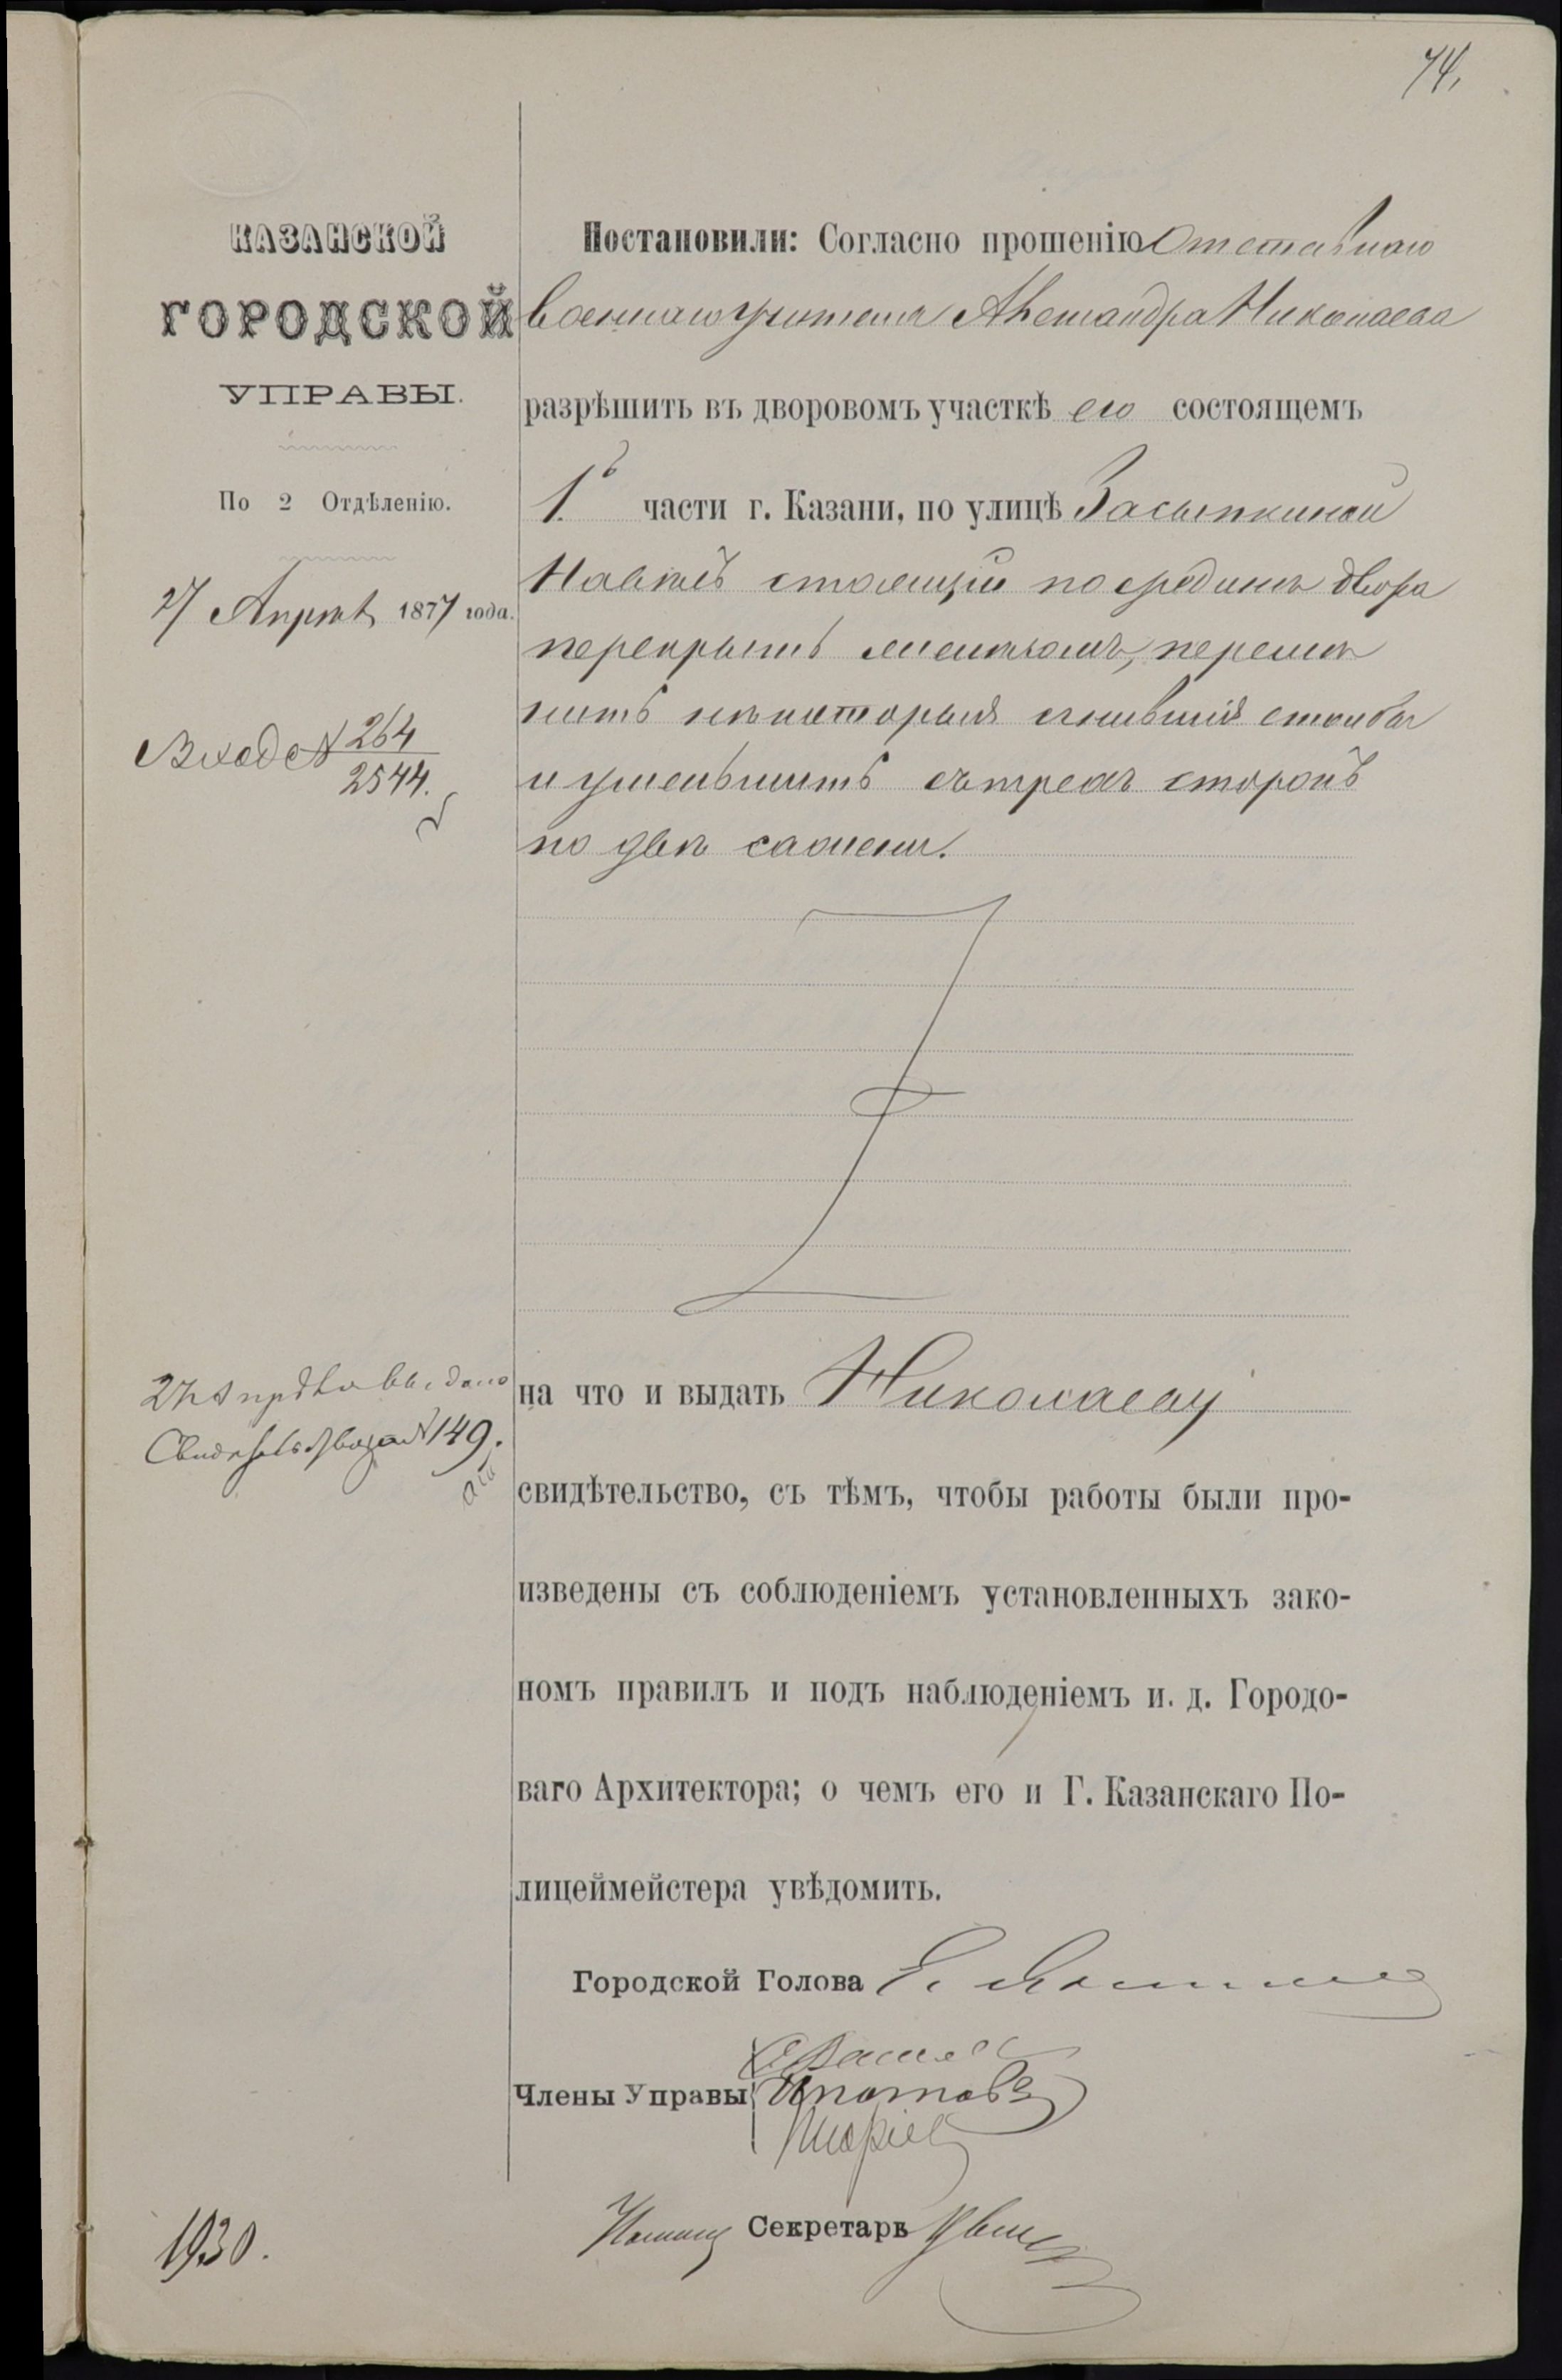 74.
КАЗАНСКОЙ
ГОРОДСКОЙ
УПРАВЫ.
По 2 Отдѣленію.
27 Апрѣля 1877 года.
Вход № 264
2544.
Постановили: Согласно прошенію Отставнаго
военнаго учителя Александра Николаева
разрѣшить въ дворовомъ участкѣ его состоящемъ
1й части г. Казани, по улицѣ Засыпкиной
Навѣсъ стоящій по срединѣ двора
перекрыть желѣзомъ, перемѣ
нить нѣкоторыя сгнившія столбы
и уменьшить съ трехъ сторонъ
по двѣ сажени.
27 Апрѣля выдано
Свидѣтельство за № 149.
на что и выдать Николаеву
свидѣтельство, съ тѣмъ, чтобы работы были про-
изведены съ соблюденіемъ установленныхъ зако-
номъ правилъ и подъ наблюденіемъ и. д. Городо-
ваго Архитектора; о чемъ его и Г. Казанскаго По-
лицеймейстера увѣдомить.
Городской Голова
Члены Управы Ипатовъ
Секретарь
1930.